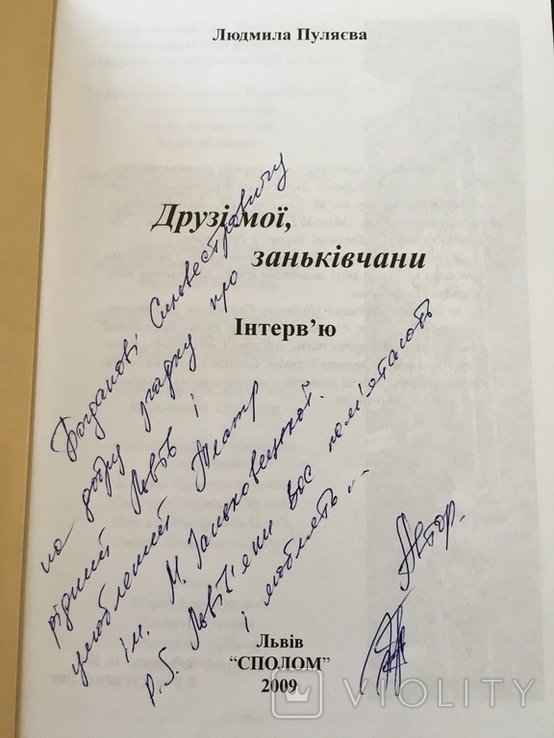 Людмила Пуляєва
Друзі мої,
заньківчани
Інтерв’ю
Богданові Сильвестровичу
на добру згадку про
рідний Львів і
улюблений Театр
ім. М. Заньковецької.
P.S. Львів'яни Вас пам'ятають
і люблять...
Автор.
Львів
“СПОЛОМ”
2009
VIOLITY